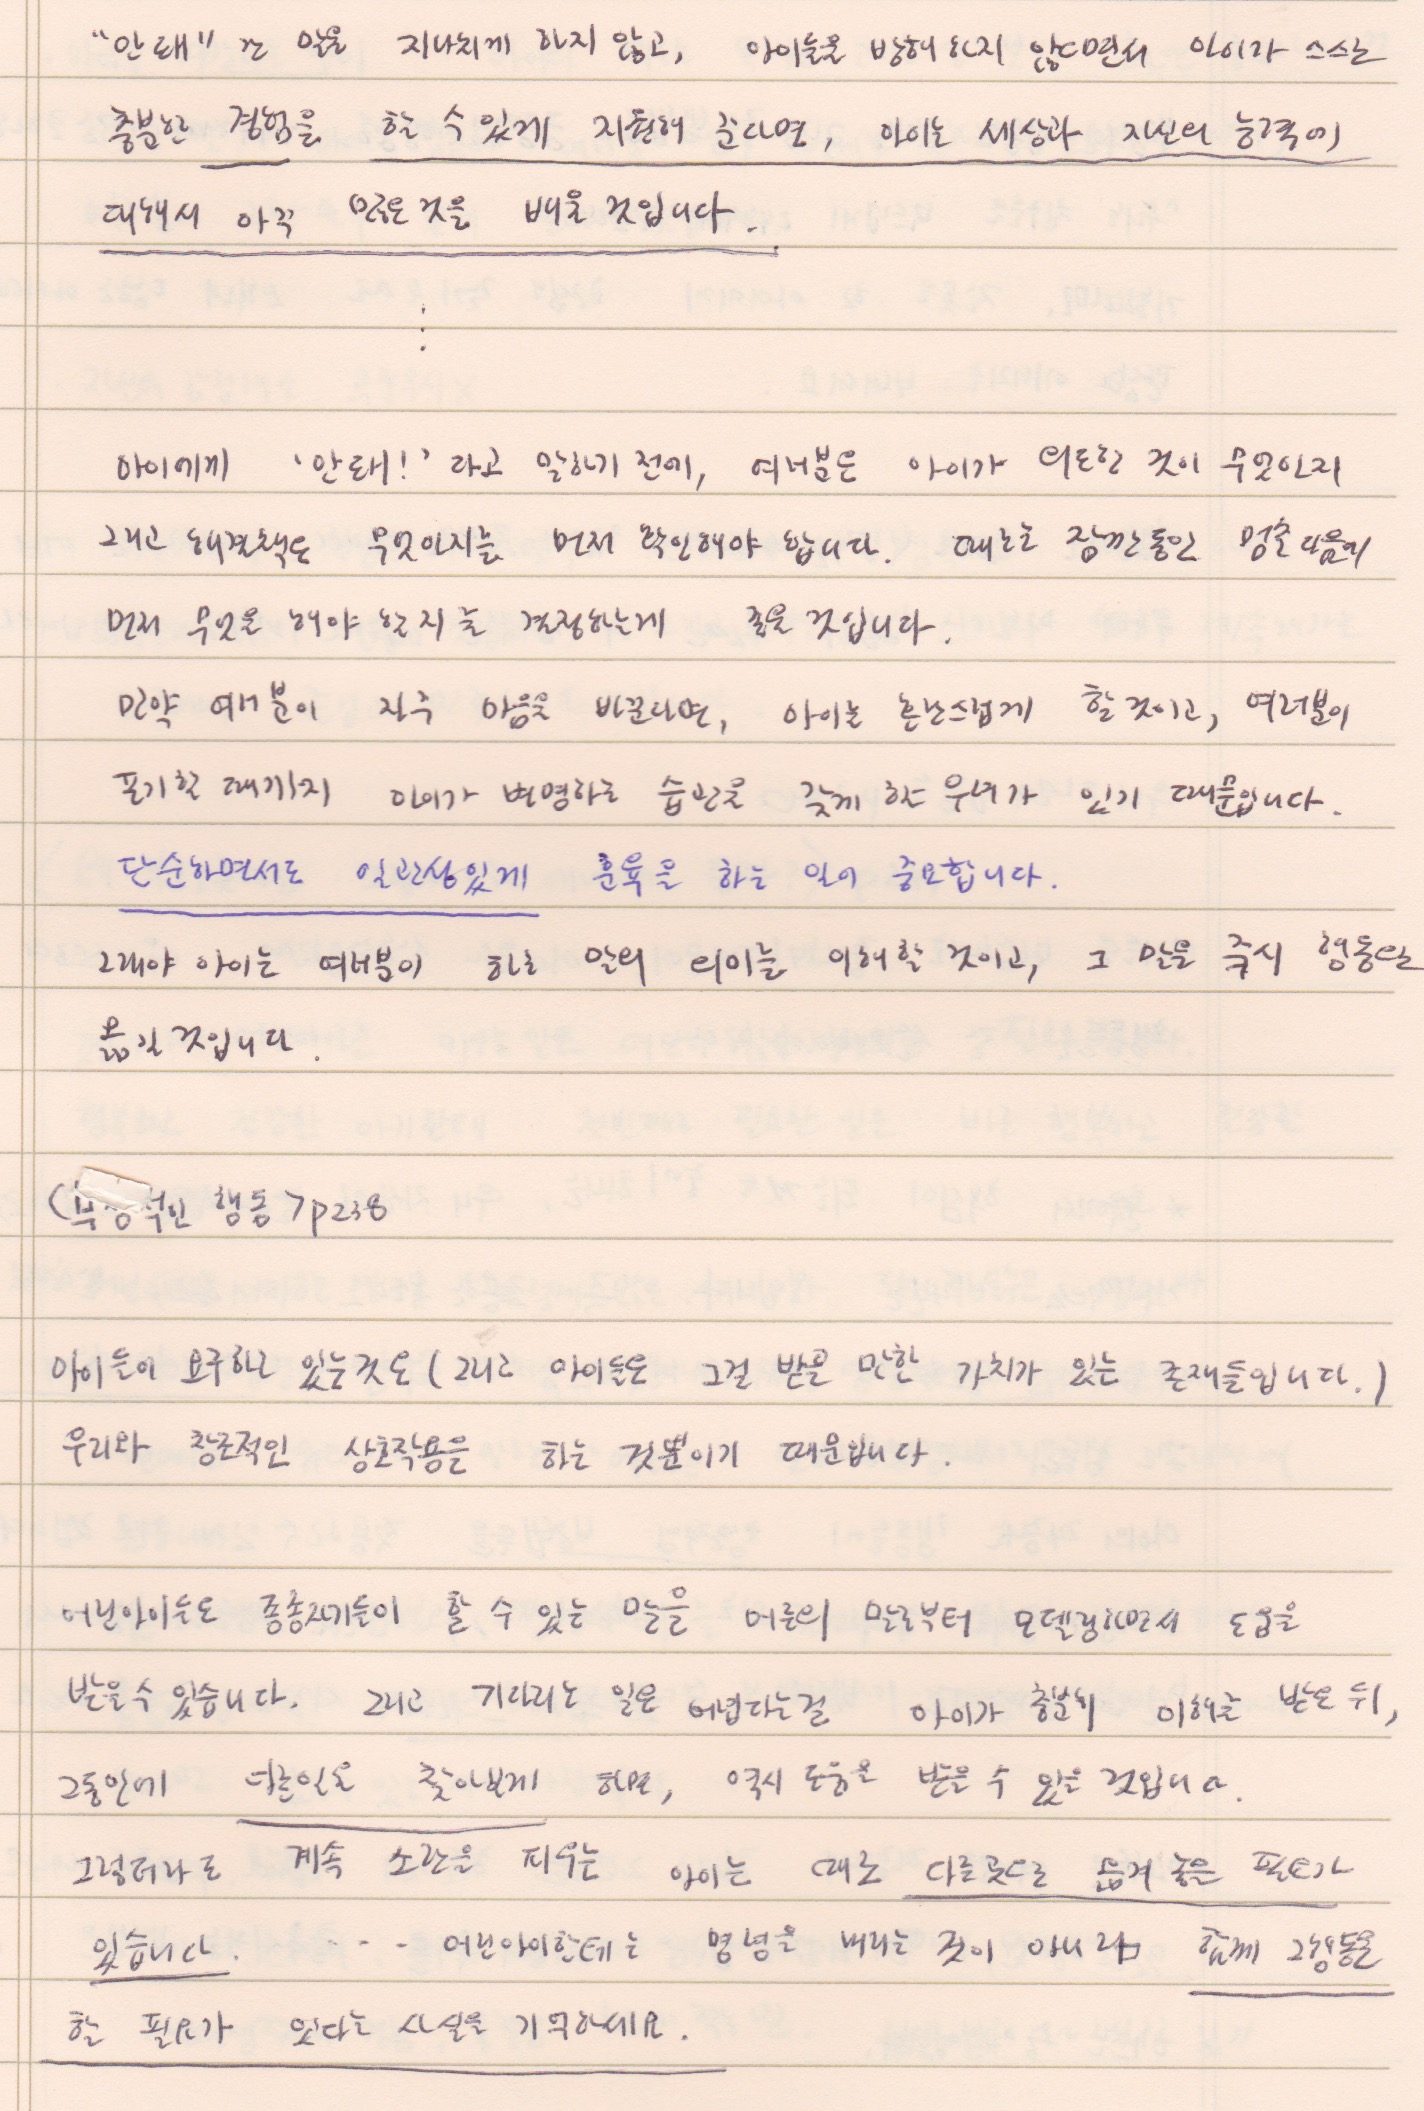 "안돼" 란 말을 지나치게 하지 않고, 아이들을 방해하지 않으면서 아이가 스스로
충분한 경험을 할 수 있게 지원해 준다면, 아이는 세상과 자신의 능력에
대해서 아주 많은것을 배울 것입니다.
⋮
아이에게 '안돼!' 라고 말하기 전에, 여러분은 아이가 의도한 것이 무엇인지
그리고 해결책은 무엇인지를 먼저 확인해야 합니다. 때로는 잠깐동안 멈춘다음에
먼저 무엇을 해야 할지를 결정하는게 좋을 것입니다.
만약 여러분이 자주 마음을 바꾼다면, 아이는 혼란스럽게 할것이고, 여러분이
포기할 때까지 아이가 변명하는 습관을 갖게 할 우려가 있기 때문입니다.
단순하면서도 일관성있게 훈육을 하는 일이 중요합니다.
그래야 아이는 여러분이 하는 말의 의미를 이해할 것이고, 그 말을 즉시 행동으로
옮길 것입니다.
<부정적인 행동>p238
아이들이 요구하고 있는것은 (그리고 아이들은 그걸 받을 만한 가치가 있는 존재들입니다.)
우리와 창조적인 상호작용을 하는 것뿐이기 때문입니다.
어린아이들도 종종자기들이 할 수 있는 말을 어른의 말로부터 모델링하면서 도움을
받을수 있습니다. 그리고 기다리는 일은 어렵다는걸 아이가 충분히 이해를 받은 뒤,
그동안에 다른일을 찾아보게 하면, 역시 도움을 받을 수 있을 것입니다.
그렇더라도 계속 소란을 피우는 아이는 때로 다른곳으로 옮겨 놓을 필요가
있습니다. ... 어린아이한테는 명령을 내리는 것이 아니라 함께 그행동을
할 필요가 있다는 사실을 기억하세요.